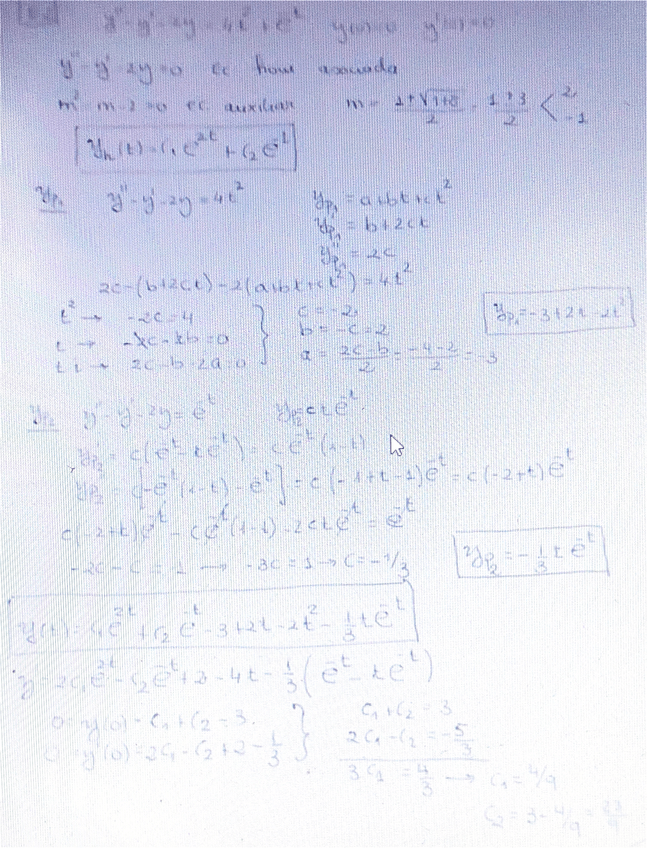 y'' - y' - 2y = 4t² + e^-t    y(0)=0    y'(0)=0
y'' - y' - 2y = 0    ec. hom asociada
m² - m - 2 = 0    ec. auxiliar    m = (1 ± √1+8)/2 = (1 ± 3)/2 < 2, -1
y_h(t) = c₁ e^2t + c₂ e^-t
y_p₁    y'' - y' - 2y = 4t²    y_p₁ = a + bt + ct²
y'_p₁ = b + 2ct
y''_p₁ = 2c
2c - (b + 2ct) - 2(a + bt + ct²) = 4t²
t² → -2c = 4    c = -2    y_p₁ = -3 + 2t - 2t²
t → -2c - 2b = 0    b = -c = 2
t i → 2c - b - 2a = 0    a = (2c - b)/2 = (-4 - 2)/2 = -3
y_p₂    y'' - y' - 2y = e^-t    y_p₂ = c t e^-t
y'_p₂ = c(e^-t - t e^-t) = c e^-t (1-t)
y''_p₂ = c[-e^-t (1-t) - e^-t] = c(-1+t-1) e^-t = c(-2+t) e^-t
c(-2+t) e^-t - c e^-t (1-t) - 2ct e^-t = e^-t
-2c - c = 1 → -3c = 1 → c = -1/3    y_p₂ = -1/3 t e^-t
y(t) = c₁ e^2t + c₂ e^-t - 3 + 2t - 2t² - 1/3 t e^-t
y' = 2c₁ e^2t - c₂ e^-t + 2 - 4t - 1/3 (e^-t - t e^-t)
0 = y(0) = c₁ + c₂ - 3    c₁ + c₂ = 3
0 = y'(0) = 2c₁ - c₂ + 2 - 1/3    2c₁ - c₂ = -5/3
3c₁ = 4/3 → c₁ = 4/9
c₂ = 3 - 4/9 = 23/9